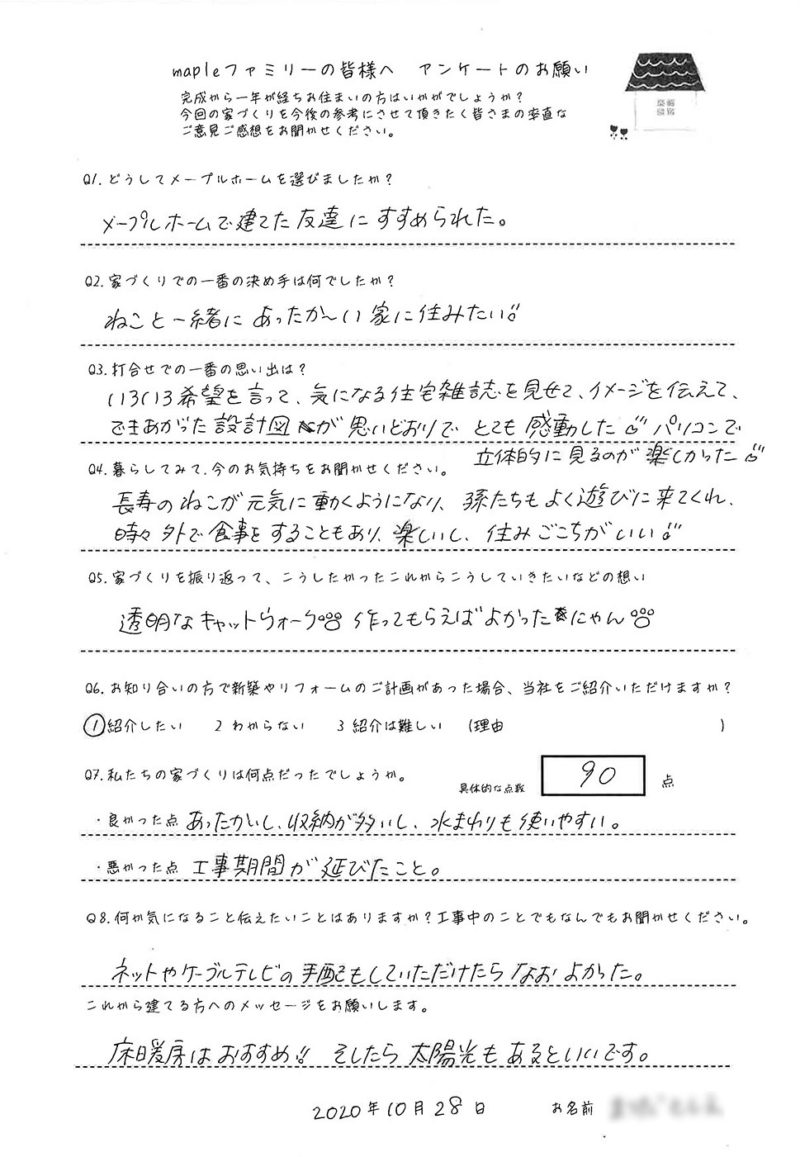 mapleファミリーの皆様へ　アンケートのお願い
完成から一年が経ちお住まいの方はいかがでしょうか？
今回の家づくりを今後の参考にさせて頂きたく皆さまの率直な
ご意見ご感想をお聞かせください。
Q1.どうしてメープルホームを選びましたか？
メープルホームで建てた友達にすすめられた。
Q2.家づくりでの一番の決め手は何でしたか？
ねこと一緒にあったか〜い家に住みたい
Q3.打合せでの一番の思い出は？
いろいろ希望を言って、気になる住宅雑誌を見せて、イメージを伝えて、
できあがった設計図が思いどおりでとても感動した パソコンで
立体的に見るのが楽しかった
Q4.暮らしてみて、今のお気持ちをお聞かせください。
長寿のねこが元気に動くようになり、孫たちもよく遊びに来てくれ、
時々外で食事をすることもあり、楽しいし、住みごこちがいい
Q5.家づくりを振り返って、こうしたかったこれからこうしていきたいなどの想い
透明なキャットウォーク作ってもらえばよかったにゃん
Q6.お知り合いの方で新築やリフォームのご計画があった場合、当社をご紹介いただけますか？
①紹介したい　2 わからない　3 紹介は難しい　(理由　)
Q7.私たちの家づくりは何点だったでしょうか。　具体的な点数　90　点
・良かった点 あったかいし、収納が多いし、水まわりも使いやすい。
・悪かった点 工事期間が延びたこと。
Q8.何か気になること伝えたいことはありますか？工事中のことでもなんでもお聞かせください。
ネットやケーブルテレビの手配もしていただけたらなおよかった。
これから建てる方へのメッセージをお願いします。
床暖房はおすすめ!! そしたら太陽光もあるといいです。
2020年10月28日　お名前